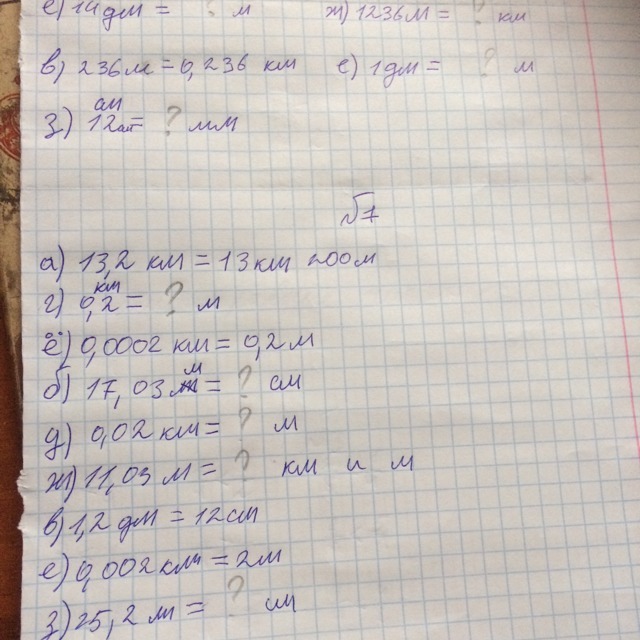 е) 14 дм = ? м ж) 1236 м = ? км
в) 236 м = 0,236 км е) 1 дм = ? м
з) 12 = ? мм
№7
а) 13,2 км = 13 км 200 м
г) 0,2 км = ? м
ё) 0,0002 км = 0,2 м
б) 17,03 м = ? см
д) 0,02 км = ? м
ж) 11,03 м = ? км и м
в) 1,2 дм = 12 см
е) 0,002 км = 2 м
з) 25,2 м = ? см